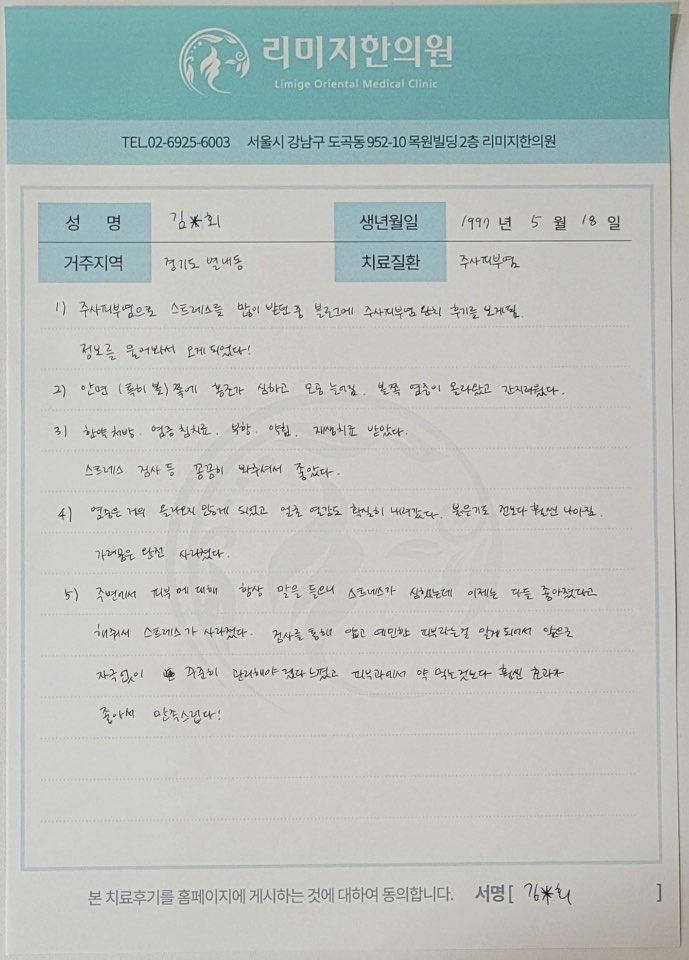 리미지한의원
Limige Oriental Medical Clinic
TEL.02-6925-6003 서울시 강남구 도곡동 952-10 목원빌딩 2층 리미지한의원
성 명 김*희 생년월일 1997 년 5 월 18 일
거주지역 경기도 별내동 치료질환 주사피부염
1) 주사피부염으로 스트레스를 많이 받던 중 블로그에 주사피부염 완치 후기를 보게 됨.
정보를 읽어봐서 오게 되었다!
2) 안면 (특히 볼) 쪽에 홍조가 심하고 모공 늘어짐. 볼쪽 염증이 올라왔고 간지러웠다.
3) 한약 처방. 염증 침치료. 부항. 약침. 재생치료 받았다.
스트레스 검사 등 꼼꼼히 봐주셔서 좋았다.
4) 염증은 거의 올라오지 않게 되었고 얼굴 열감도 확실히 내려갔다. 붉은기도 전보다 훨씬 나아짐.
가려움은 완전 사라졌다.
5) 주변에서 피부에 대해 항상 말을 들으니 스트레스가 심했는데 이제는 다들 좋아졌다고
해줘서 스트레스가 사라졌다. 검사를 통해 얇고 예민한 피부라는걸 알게 되어서 앞으로
자극없이 꾸준히 관리해야겠다 느꼈고 피부과에서 약 먹는것보다 훨씬 효과가
좋아서 만족스럽다!
본 치료후기를 홈페이지에 게시하는 것에 대하여 동의합니다. 서명 [ 김*희 ]